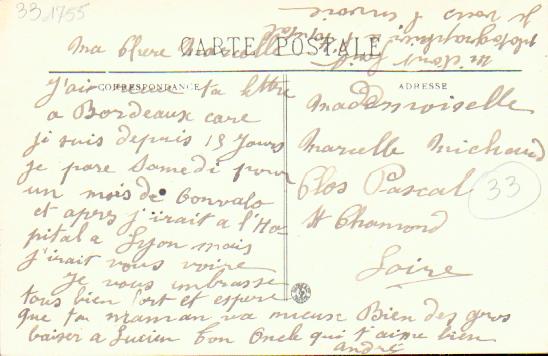 33 1755
CARTE POSTALE
CORRESPONDANCE
ADRESSE
Ma Chere Marcelle
J'ai ta lettre
a Bordeaux care
je suis depuis 15 Jours
je pare Samedi pour
un mois de Convalo
et apres j'irait a l'Ho
pital a Lyon mais
j'irait vous voire
Je vous embrasse
tous bien fort et espere
que ta maman va mieux Bien des gros
baiser a Lucien ton Oncle qui t'aime bien
andré
Mademoiselle
Marcelle Michaud
Clos Pascal
St Chamond
Loire
33